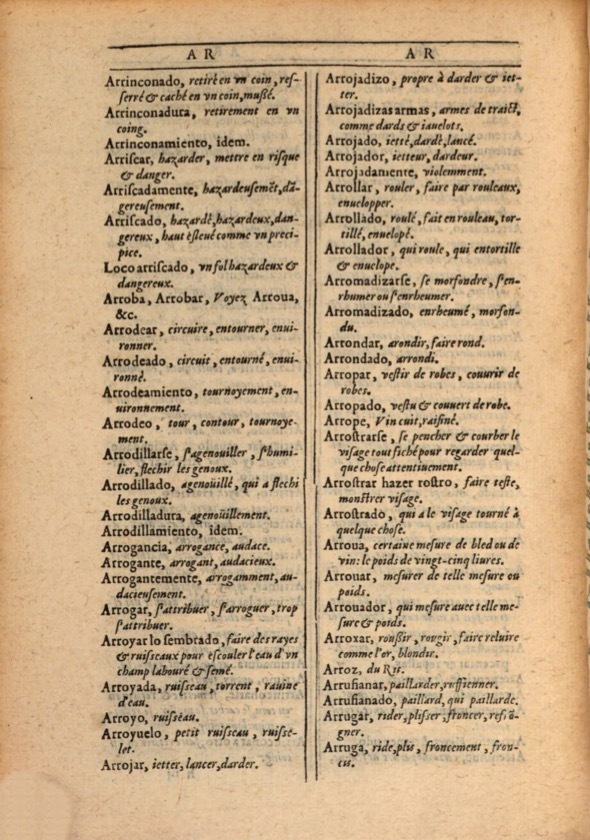 A R
Arrinconado, retiré en vn coin, reſ-
ſerré & caché en vn coin, muſſé.
Arrinconadura, retirement en vn
coing.
Arrinconamiento, idem.
Arriſcar, hazarder, mettre en riſque
& danger.
Arriſcadamente, hazardeuſemẽt, dã-
gereuſement.
Arriſcado, hazardé, hazardeux, dan-
gereux, haut eſleué comme vn preci-
pice.
Loco arriſcado, vn fol hazardeux &
dangereux.
Arroba, Arrobar, Voyez Arroua,
&c.
Arrodear, circuire, entourner, enui-
ronner.
Arrodeado, circuit, entourné, enui-
ronné.
Arrodeamiento, tournoyement, en-
uironnement.
Arrodeo, tour, contour, tournoye-
ment.
Arrodillarſe, ſ'agenouiller, ſ'humi-
lier, flechir les genoux.
Arrodillado, agenoüillé, qui a flechi
les genoux.
Arrodilladura, agenoüillement.
Arrodillamiento, idem.
Arrogancia, arrogance, audace.
Arrogante, arrogant, audacieux.
Arrogantemente, arrogamment, au-
dacieuſement.
Arrogar, ſ'attribuer, ſ'arroguer, trop
ſ'attribuer.
Arroyar lo ſembrado, faire des rayes
& ruiſſeaux pour eſcouler l'eau d'vn
champ labouré & ſemé.
Arroyada, ruiſſeau, torrent, rauine
d'eau.
Arroyo, ruiſſeau.
Arroyuelo, petit ruiſſeau, ruiſſe-
let.
Arrojar, ietter, lancer, darder.
A R
Arrojadizo, propre à darder & iet-
ter.
Arrojadizas armas, armes de traict,
comme dards & iauelots.
Arrojado, ietté, dardé, lancé.
Arrojador, ietteur, dardeur.
Arrojadamente, violemment.
Arrollar, rouler, faire par rouleaux,
enuelopper.
Arrollado, roulé, fait en rouleau, tor-
tillé, enuelopé.
Arrollador, qui roule, qui entortille
& enuelope.
Arromadizarſe, ſe morfondre, ſ'en-
rhumer ou ſ'enrheumer.
Arromadizado, enrheumé, morfon-
du.
Arrondar, arondir, faire rond.
Arrondado, arrondi.
Arropar, veſtir de robes, couurir de
robes.
Arropado, veſtu & couuert de robe.
Arrope, Vin cuit, raiſiné.
Arroſtrarſe, ſe pencher & courber le
viſage tout fiché pour regarder quel-
que choſe attentiuement.
Arroſtrar hazer roſtro, faire teſte,
monſtrer viſage.
Arroſtrado, qui a le viſage tourné à
quelque choſe.
Arroua, certaine meſure de bled ou de
vin: le poids de vingt-cinq liures.
Arrouar, meſurer de telle meſure ou
poids.
Arrouador, qui meſure auec telle me-
ſure & poids.
Arroxar, rouſſir, rougir, faire reluire
comme l'or, blondir.
Arroz, du Ris.
Arrufianar, paillarder, ruffienner.
Arrufianado, paillard, qui paillarde.
Arrugar, rider, pliſſer, froncer, refrã-
gner.
Arruga, ride, plis, froncement, fron-
cis.